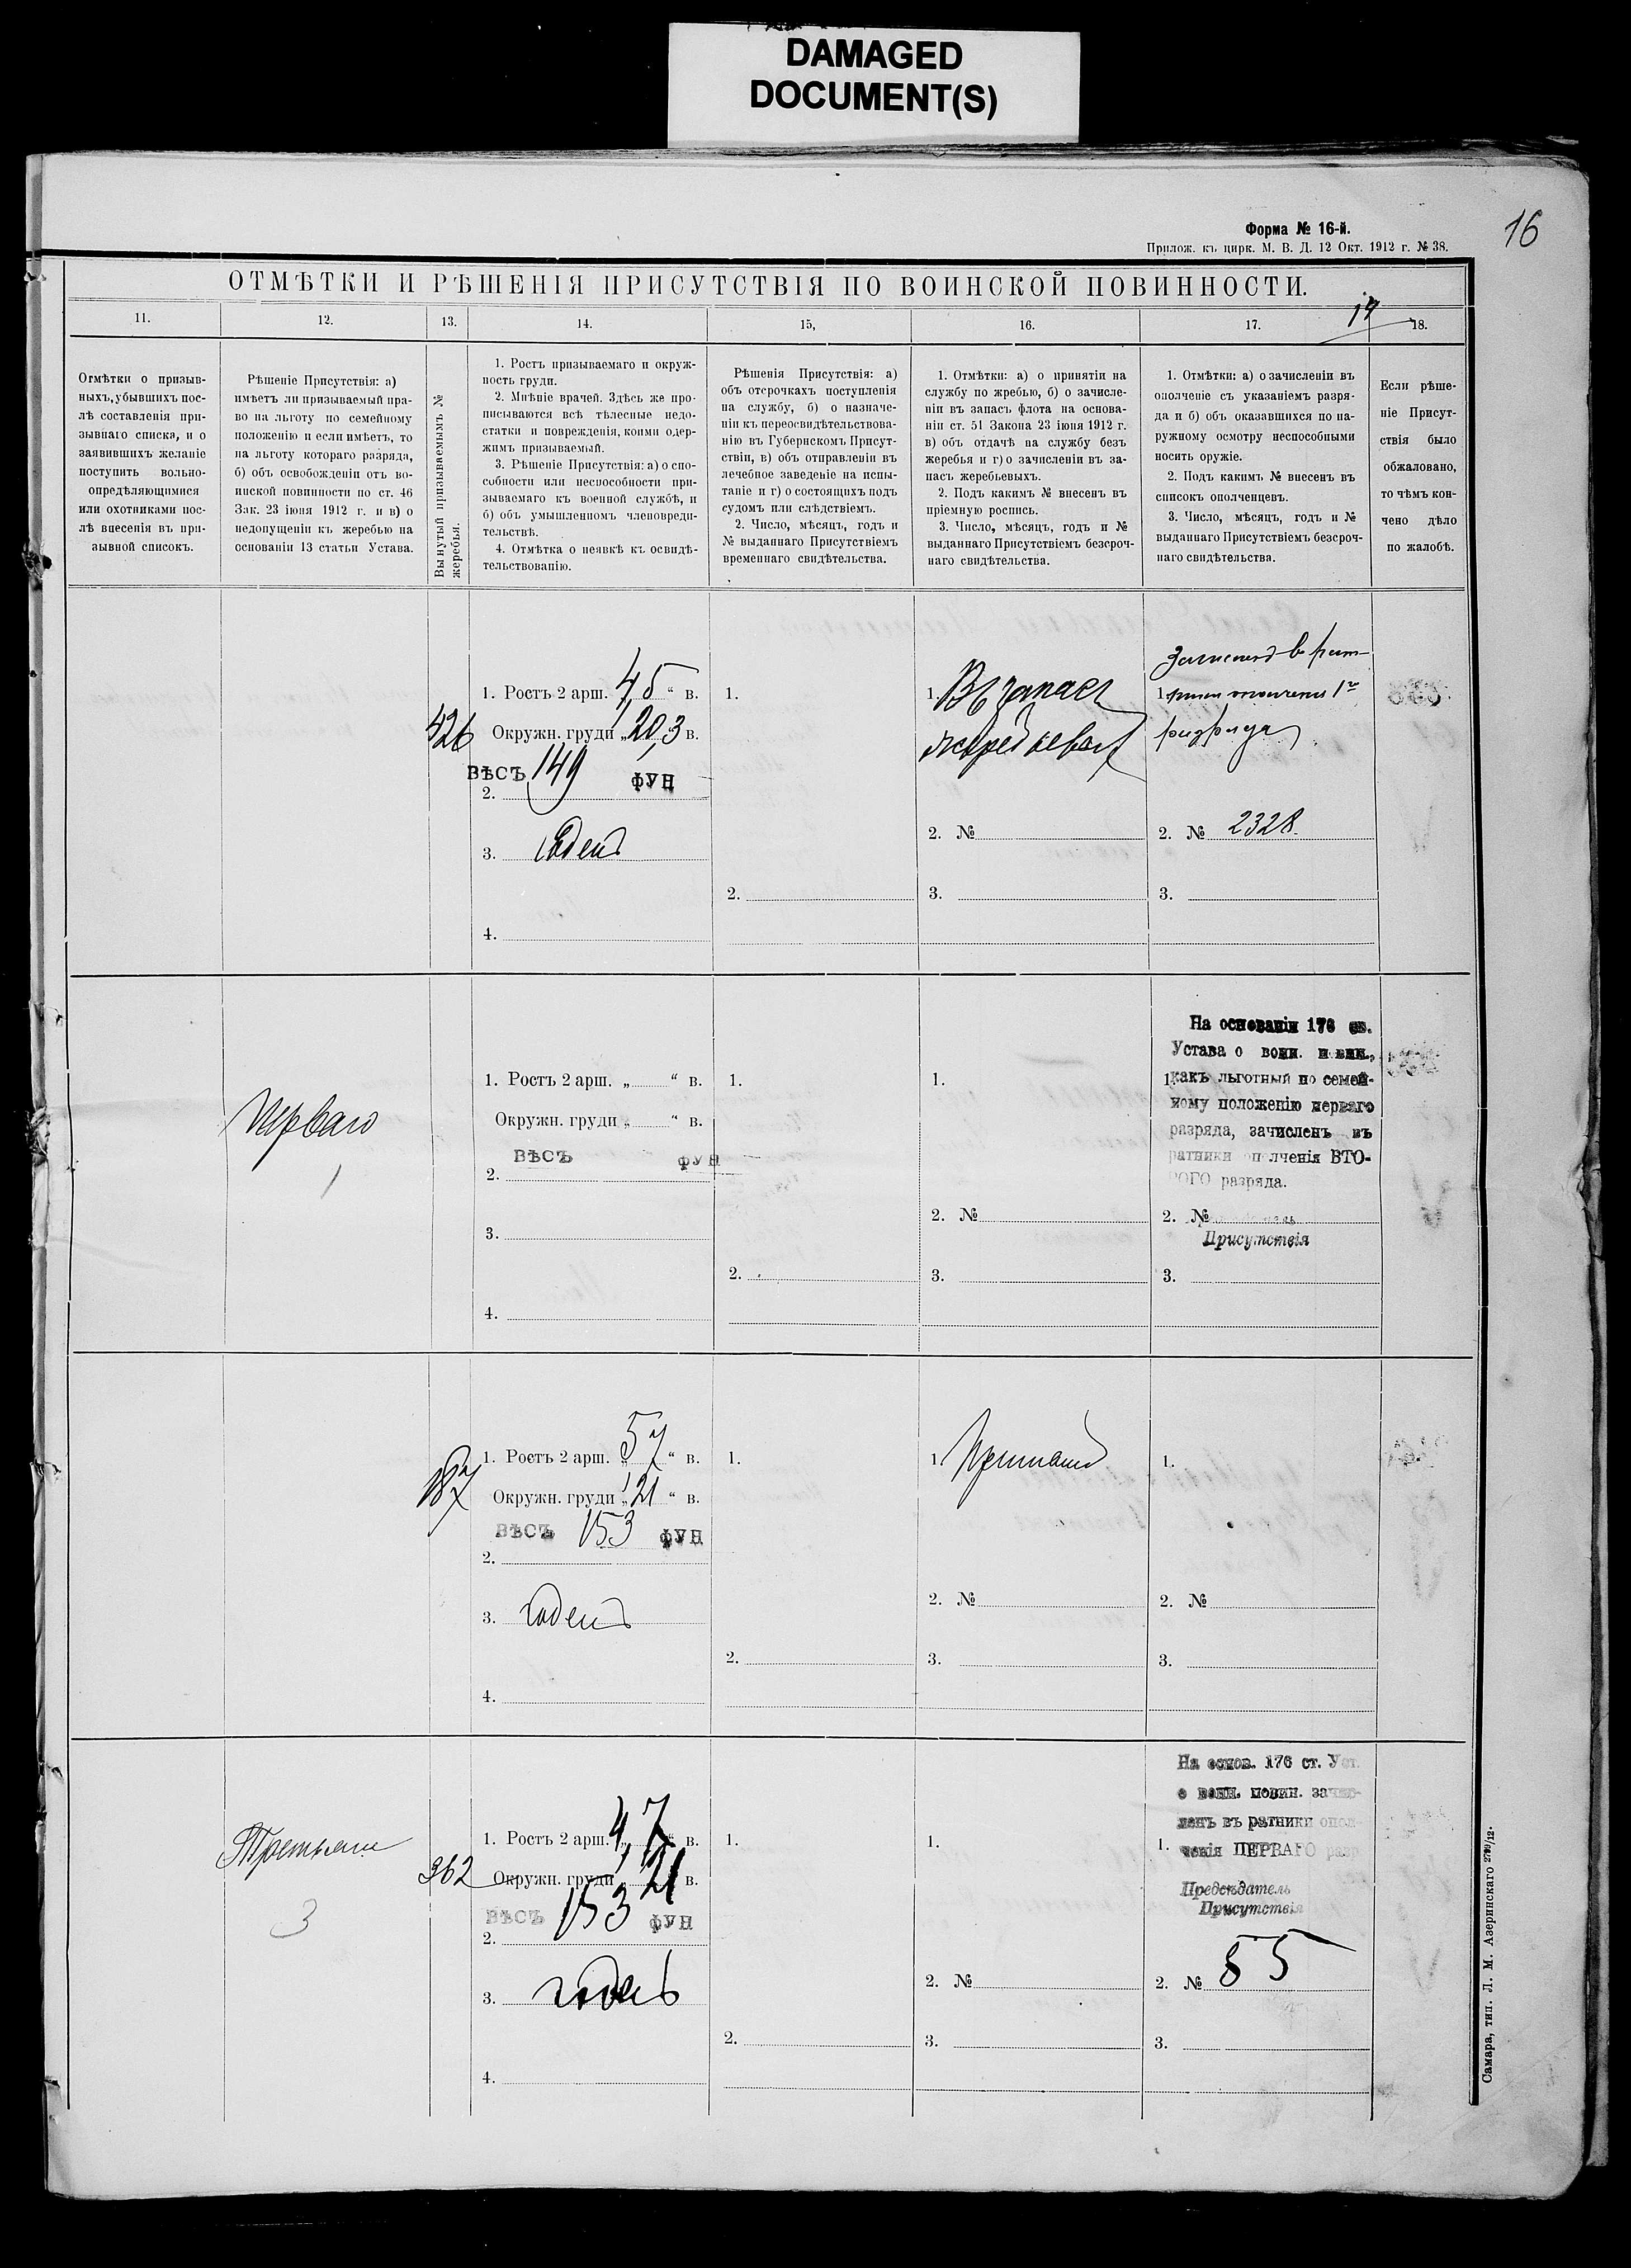 DAMAGED
DOCUMENT(S)
Форма № 16-й.
Прилож. къ цирк. М. В. Д. 12 Окт. 1912 г. № 38.
16
ОТМѢТКИ И РѢШЕНІЯ ПРИСУТСТВІЯ ПО ВОИНСКОЙ ПОВИННОСТИ.
17
11.
12.
13.
14.
15,
16.
17.
18.
Отмѣтки о призыв-
ныхъ, убывшихъ пос-
лѣ составленія при-
зывнаго списка, и о
заявившихъ желаніе
поступить вольно-
опредѣляющимися
или охотниками пос-
лѣ внесенія въ при-
зывной списокъ.
Рѣшеніе Присутствія: а)
имѣетъ ли призываемый пра-
во на льготу по семейному
положенію и если имѣетъ, то
на льготу котораго разряда,
б) объ освобожденіи отъ во-
инской повинности по ст. 46
Зак. 23 іюня 1912 г. и в) о
недопущеніи къ жеребью на
основаніи 13 статьи Устава.
Вынутый призываемымъ №
жеребья.
1. Ростъ призываемаго и окруж-
ность груди.
2. Мнѣніе врачей. Здѣсь же про-
писываются всѣ тѣлесные недо-
статки и поврежденія, коими одер-
жимъ призываемый.
3. Рѣшеніе Присутствія: а) о спо-
собности или неспособности при-
зываемаго къ военной службѣ, и
б) объ умышленномъ членовреди-
тельствѣ.
4. Отмѣтка о неявкѣ къ освидѣ-
тельствованію.
Рѣшенія Присутствія: а)
объ отсрочкахъ поступленія
на службу, б) о назначе-
ніи къ переосвидѣтельствова-
нію въ Губернскомъ Присут-
ствіи, в) объ отправленіи въ
лечебное заведеніе на испы-
таніе и г) о состоящихъ подъ
судомъ или слѣдствіемъ.
2. Число, мѣсяцъ, годъ и
№ выданнаго Присутствіемъ
временнаго свидѣтельства.
1. Отмѣтки: а) о принятіи на
службу по жребью, б) о зачисле-
ніи въ запасъ флота на основа-
ніи ст. 51 Закона 23 іюня 1912 г.
в) объ отдачѣ на службу безъ
жеребья и г) о зачисленіи въ за-
пасъ жеребьевыхъ.
2. Подъ какимъ № внесенъ въ
пріемную роспись.
3. Число, мѣсяцъ, годъ и №
выданнаго Присутствіемъ безсроч-
наго свидѣтельства.
1. Отмѣтки: а) о зачисленіи въ
ополченіе съ указаніемъ разря-
да и б) объ оказавшихся по на-
ружному осмотру неспособными
носить оружіе.
2. Подъ какимъ № внесенъ въ
списокъ ополченцевъ.
3. Число, мѣсяцъ, годъ и №
выданнаго Присутствіемъ безсроч-
наго свидѣтельства.
Если рѣше-
ніе Присут-
ствія было
обжаловано,
то чѣмъ кон-
чено дѣло
по жалобѣ.
426
1. Ростъ 2 арш. 4,5 “ в.
Окружн. груди „ 20,3 в.
ВѢСЪ 149 ФУН
2.
3. Годенъ
4.
1.
2.
1. Въ запасъ
жеребьевыхъ
2. №
3.
1.
разряда
2. № 2328
3.
Перваго
1
1. Ростъ 2 арш. „ “ в.
Окружн. груди „ “ в.
ВѢСЪ ФУН
2.
3.
4.
1.
2.
1.
2. №
3.
На основаніи 176 ст.
Устава о воин. повин.,
1. какъ льготный по семей-
ному положенію перваго
разряда, зачисленъ въ
ратники ополченія ВТО-
РОГО разряда.
2. №
Присутствія
3.
187
1. Ростъ 2 арш. „ 57 “ в.
Окружн. груди „ 21 “ в.
ВѢСЪ 153 ФУН
2.
3. годенъ
4.
1.
2.
1. Принятъ
2. №
3.
1.
2. №
3.
3
362
1. Ростъ 2 арш. 4,7 в.
Окружн. груди 21 в.
ВѢСЪ 153 ФУН
2.
3. годенъ
4.
1.
2.
1.
2. №
3.
На основ. 176 ст. Уст.
о воин. повин. зачис-
ленъ въ ратники опол-
1. ченія ПЕРВАГО разр
Предсѣдатель
Присутствія
2. № 85
3.
Самара, тип. Л. М. Азеринскаго